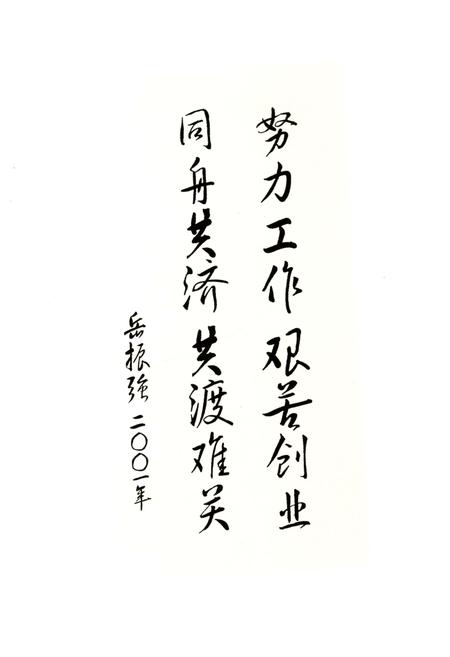 努力工作艰苦创业
同舟共济共渡难关
岳振强二〇〇一年